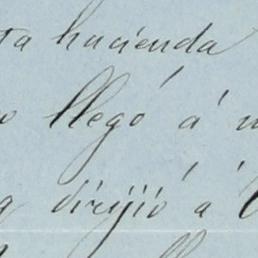 ta hacienda
llegó á
dirijió á